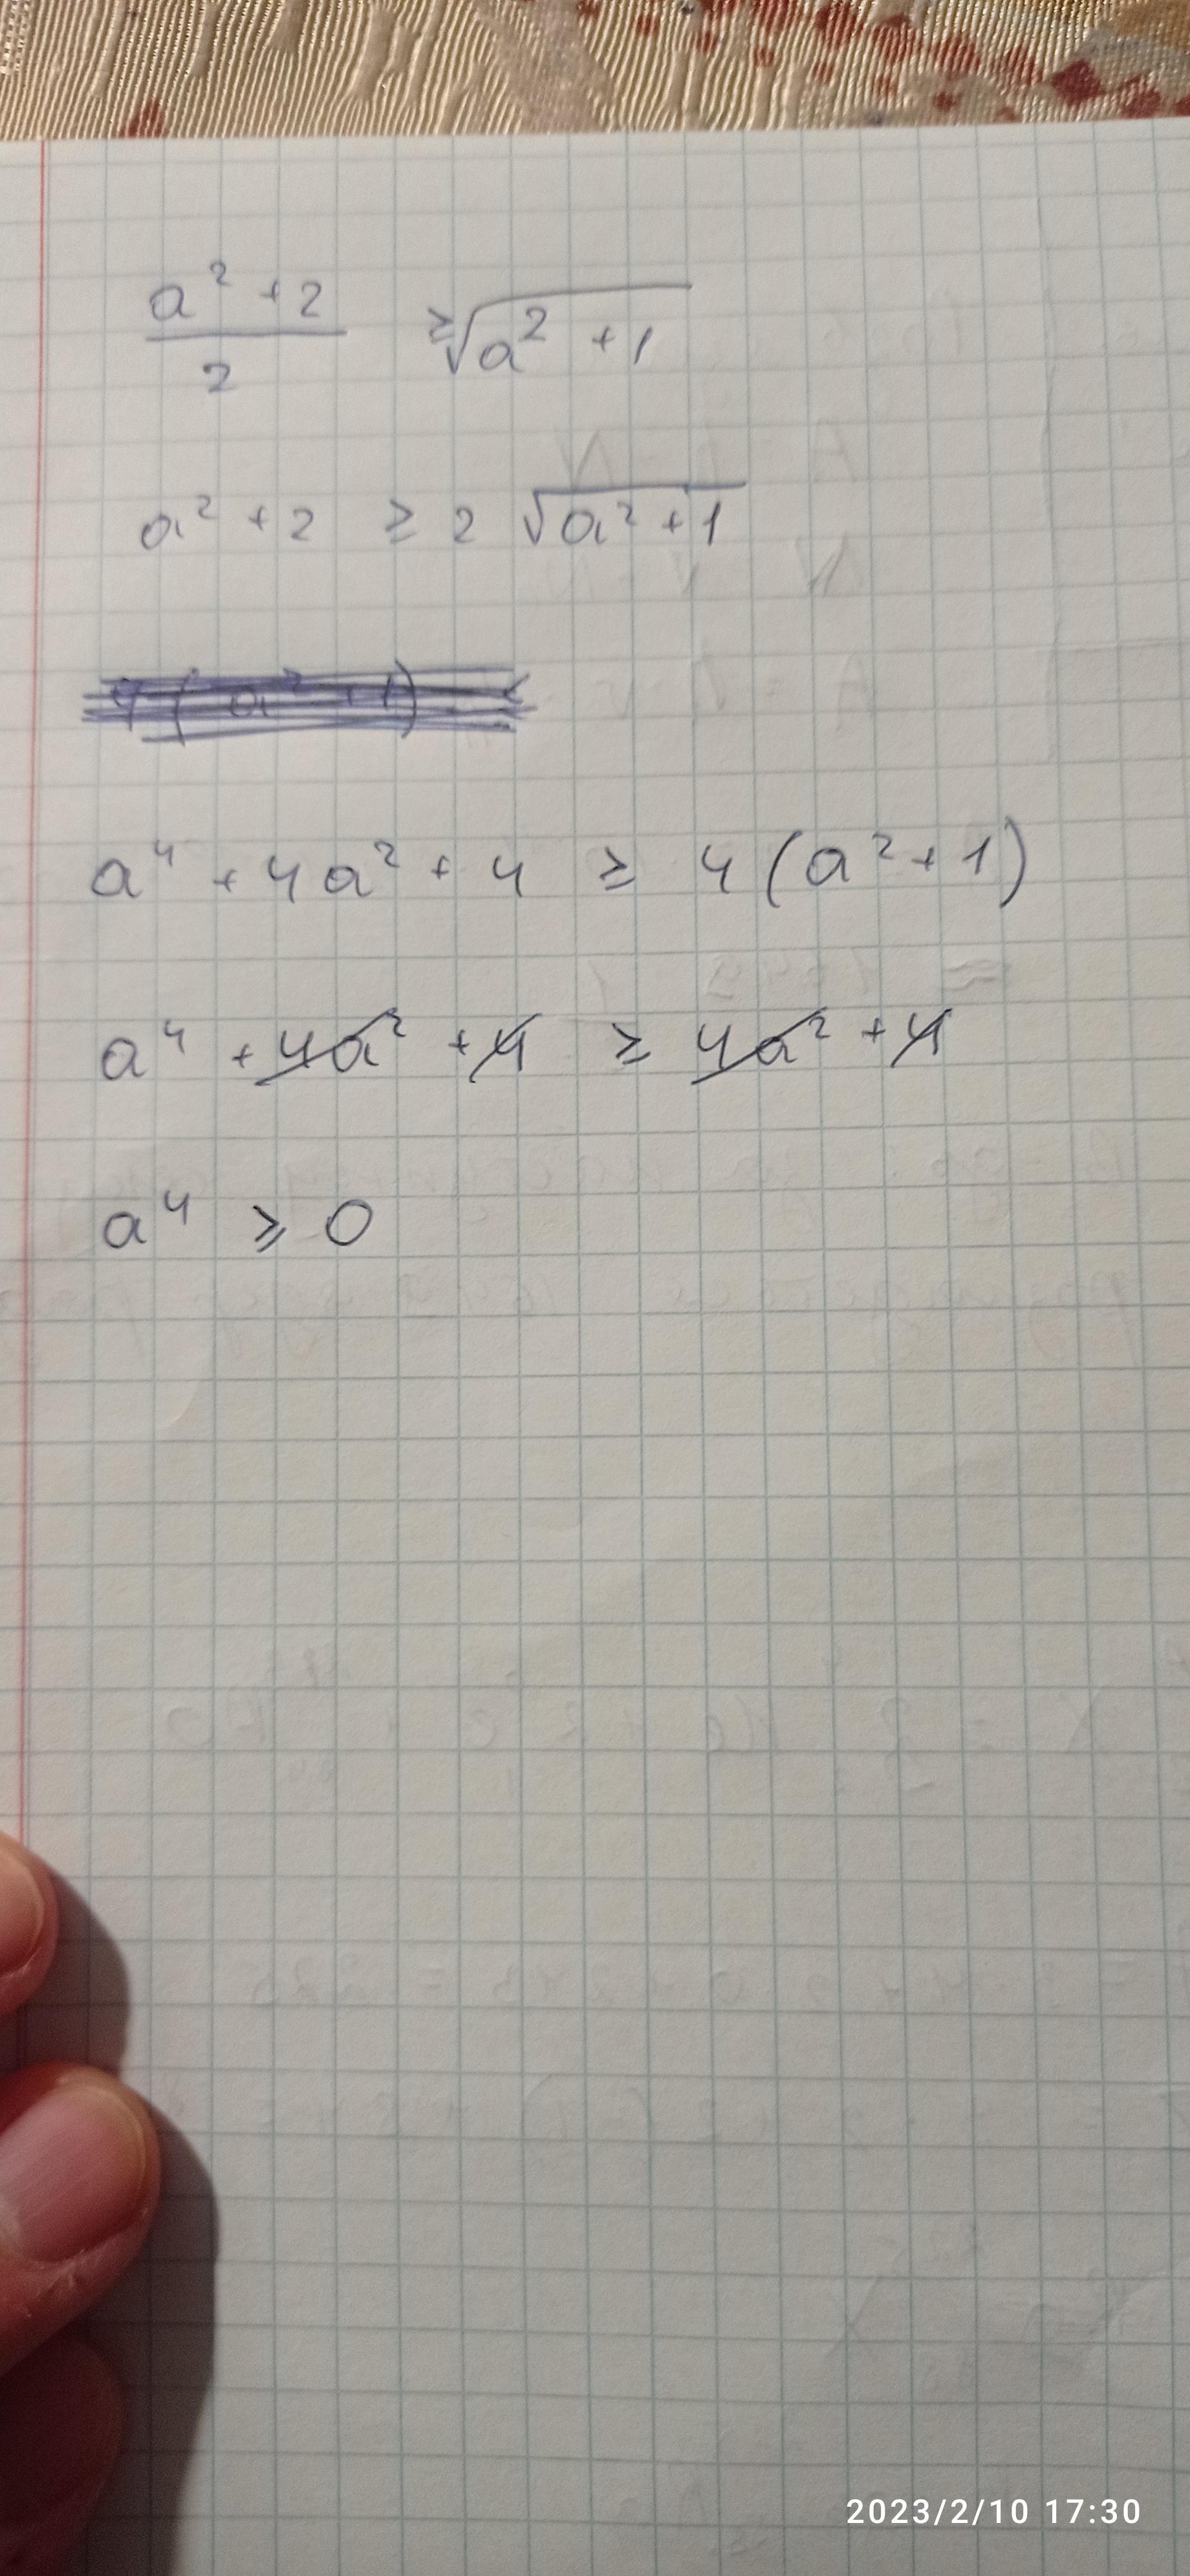 a² + 2 / 2 ≥ √(a² + 1)
a² + 2 ≥ 2 √(a² + 1)
a⁴ + 4a² + 4 ≥ 4(a² + 1)
a⁴ + 4a² + 4 ≥ 4a² + 4
a⁴ ≥ 0
2023/2/10 17:30